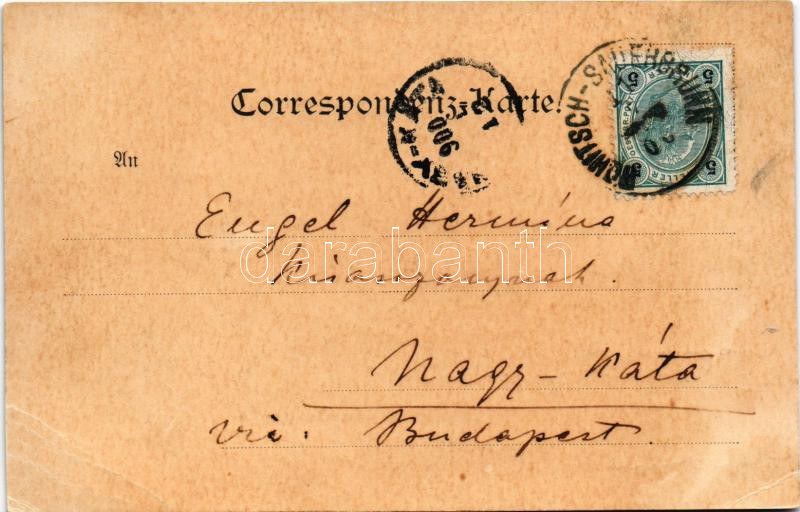 Correspondenz-Karte.
ROHITSCH-SAUERBRUNN
5 5
5 5
HELLER
900
An
Engel Hermina
Kisasszonynak.
darabanth
Nagy-Káta
via: Budapest.